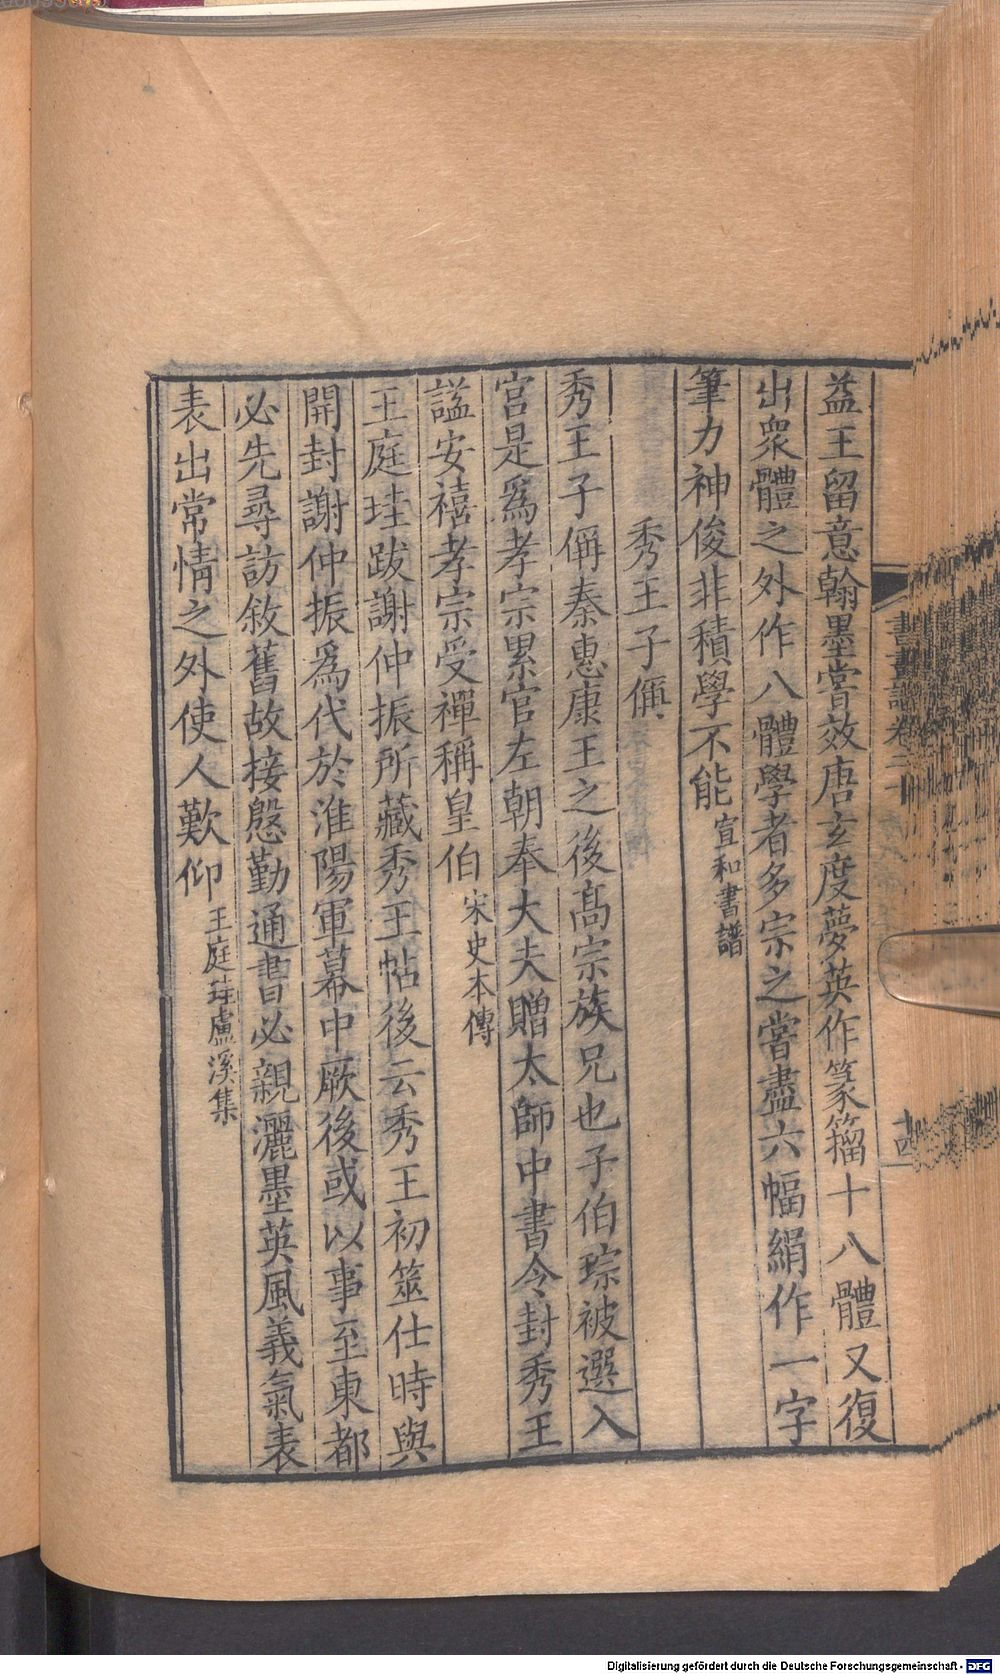 益王留意翰墨嘗效唐玄度夢英作篆籀十八體又復
出衆體之外作八體學者多宗之嘗盡六幅絹作一字
筆力神俊非積學不能宣和書譜
秀王子偁
秀王子偁秦惠康王之後高宗族兄也子伯琮被選入
宮是爲孝宗累官左朝奉大夫贈太師中書令封秀王
諡安禧孝宗受禪稱皇伯宋史本傳
王庭珪跋謝仲振所藏秀王帖後云秀王初筮仕時與
開封謝仲振爲代於淮陽軍幕中厥後或以事至東都
必先尋訪敘舊故接慇勤通書必親灑墨英風義氣表
表出常情之外使人歎仰王庭珪盧溪集
書畫譜卷二十
十四
Digitalisierung gefördert durch die Deutsche Forschungsgemeinschaft - DFG